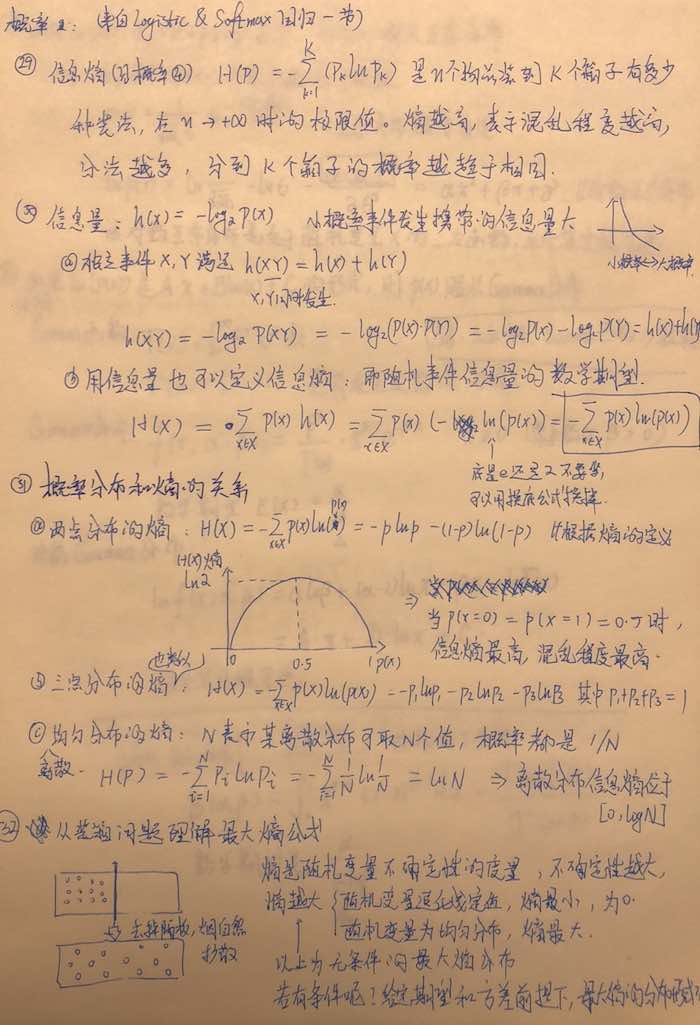 概率2: (来自Logistic & Softmax回归一节)
㉙ 信息熵(同概率④) H(P) = -∑_{k=1}^{K}(P_k ln P_k) 是n个物品装到K个箱子有多少
种装法, 在n→+∞时的极限值。熵越高, 表示混乱程度越高,
分法越多, 分到K个箱子的概率越趋于相同.
㉚ 信息量: h(x) = -log₂P(x) 小概率事件发生携带的信息量大
小概率↔大概率
ⓐ 独立事件X,Y满足 h(XY) = h(X) + h(Y)
X,Y同时发生.
h(XY) = -log₂ P(XY) = -log₂(P(X)·P(Y)) = -log₂P(X) - log₂P(Y) = h(X)+h(Y)
ⓑ 用信息量也可以定义信息熵: 即随机事件信息量的数学期望.
H(X) = ∑_{x∈X} P(x) h(x) = ∑_{x∈X} P(x) (-ln(P(x)) = -∑_{x∈X} P(x)ln(P(x))
底是e还是2不要紧,
可以用换底公式转换.
㉛ 概率分布和熵的关系
ⓐ 两点分布的熵: H(X) = -∑_{x∈X} P(x)ln P(x) = -p ln p - (1-p)ln(1-p) 根据熵的定义
H(X)熵
ln2
0 0.5 1 p(x)
⇒ 当P(x=0) = P(x=1) = 0.5时,
信息熵最高, 混乱程度最高.
也类似
ⓑ 三点分布的熵: H(X) = -∑_{x∈X} P(x)ln(P(x)) = -P₁lnP₁ - P₂lnP₂ - P₃lnP₃ 其中P₁+P₂+P₃ = 1
ⓒ 均匀分布的熵: N表示某离散分布可取N个值, 概率都是1/N
离散. H(P) = -∑_{i=1}^{N} P_i ln P_i = -∑_{i=1}^{N} 1/N ln 1/N = ln N ⇒ 离散分布信息熵位于
[0, logN]
㉜ 从药箱问题理解最大熵公式
熵是随机变量不确定性的度量, 不确定性越大,
熵越大 { 随机变量退化成定值, 熵最小, 为0.
随机变量为均匀分布, 熵最大.
去掉隔板, 烟自然
扩散
以上为无条件的最大熵分布
若有条件呢? 给定期望和方差前提下, 最大熵的分布形式